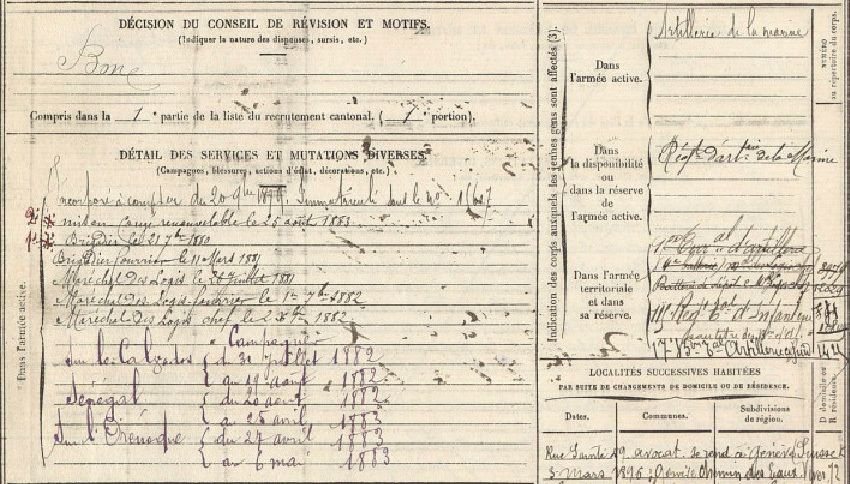 DÉCISION DU CONSEIL DE RÉVISION ET MOTIFS.
(Indiquer la nature des dispenses, sursis, etc.)
Bon
Compris dans la 1e partie de la liste du recrutement cantonal. (1e portion).
DÉTAIL DES SERVICES ET MUTATIONS DIVERSES.
(Campagnes, blessures, actions d'éclat, décorations, etc.)
Incorporé à compter du 20 9bre 1879. Immatriculé sous le no 16687
mis en congé renouvelable le 25 août 1883
Brigadier le 21 7bre 1880
Brigadier fourrier le 11 Mars 1881
Maréchal des Logis le 26 Juillet 1881
Maréchal des Logis fourrier le 1er 7bre 1882
Maréchal des Logis chef le 1882
Dans l'armée active.
Campagnes
Sur le Calvados { du 31 juillet 1882
{ au 19 août 1882
Sénégal { du 20 août 1882
{ au 25 avril 1883
Sur l'Orénoque { du 27 avril 1883
{ au 6 mai 1883
Indication des corps auxquels les jeunes gens sont affectés (3).
Dans l'armée active.
Artillerie de la marine
Dans la disponibilité ou dans la réserve de l'armée active.
Régt d'artrie de la Marine
Dans l'armée territoriale et dans sa réserve.
d'artillerie
Régt d'Infanterie
Artillerie
NUMÉRO
au répertoire du corps.
LOCALITÉS SUCCESSIVES HABITÉES
PAR SUITE DE CHANGEMENTS DE DOMICILE OU DE RÉSIDENCE.
D domicile ou
R résidence.
Dates.
Communes.
Subdivisions de région.
Rue Sainte avocat se rend à Genève Suisse
3 mars 1896 Genève Chemin des Eaux Vives, 72